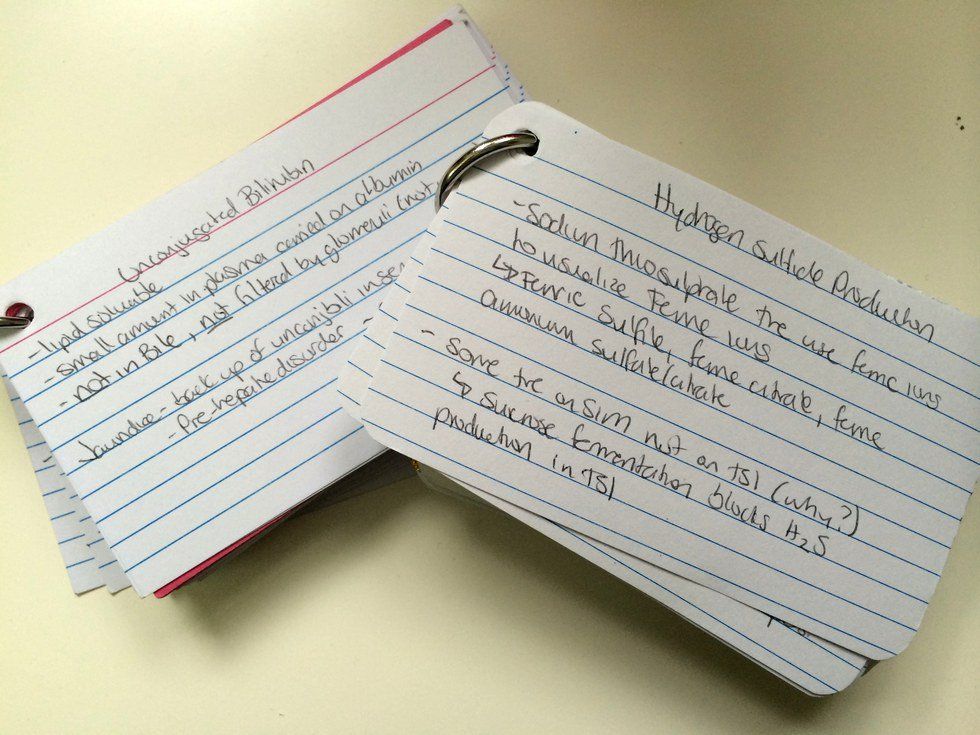 Unconjugated Bilirubin
- lipid soluble
- small amount in plasma carried on albumin
- not in Bile, not filtered by glomeruli (not
Jaundice - back up of unconj bili in ser
- Pre-hepatic disorder
Hydrogen Sulfide Production
- Sodium thiosulphate +ve use ferric ions
to visualize Ferric ions
↳ Ferric Sulfide, ferric citrate, ferric
ammonium sulfate/citrate
- Some +ve on SIM not on TSI (why?)
↳ Sucrose fermentation blocks H2S
production in TSI